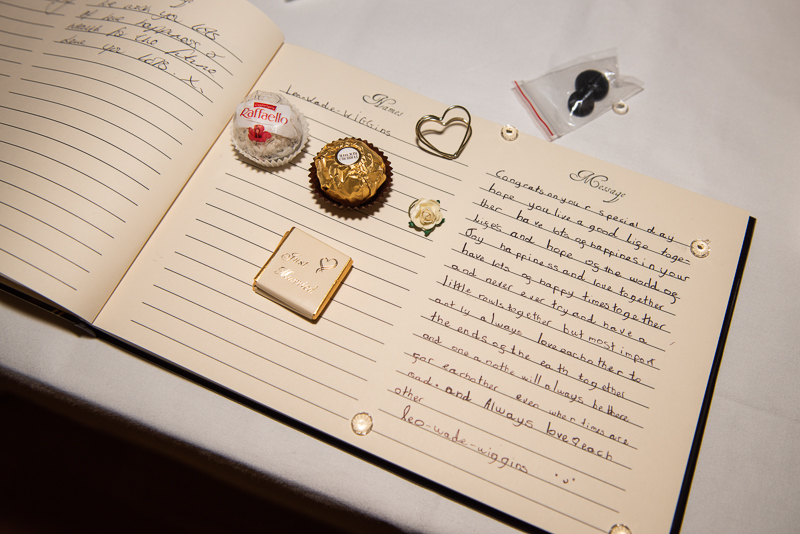 be with you lots
of love happiness or
the future
love you lots. x.
Names
Leo-Wade-Wiggins
Raffaello
Just
Married
Message
Congrats on your special day
hope you live a good lige toge-
ther have lots og happines in your
liges and hope og the world og
Joy happiness and love together
have lots og happy times together
and never ever try and have a
little rowls together but most import
antly always love eachother to
the ends og the earth together
and one anothe will always be there
gor eachother even when times are
mad. and Always love each
other
leo-wade-wiggins